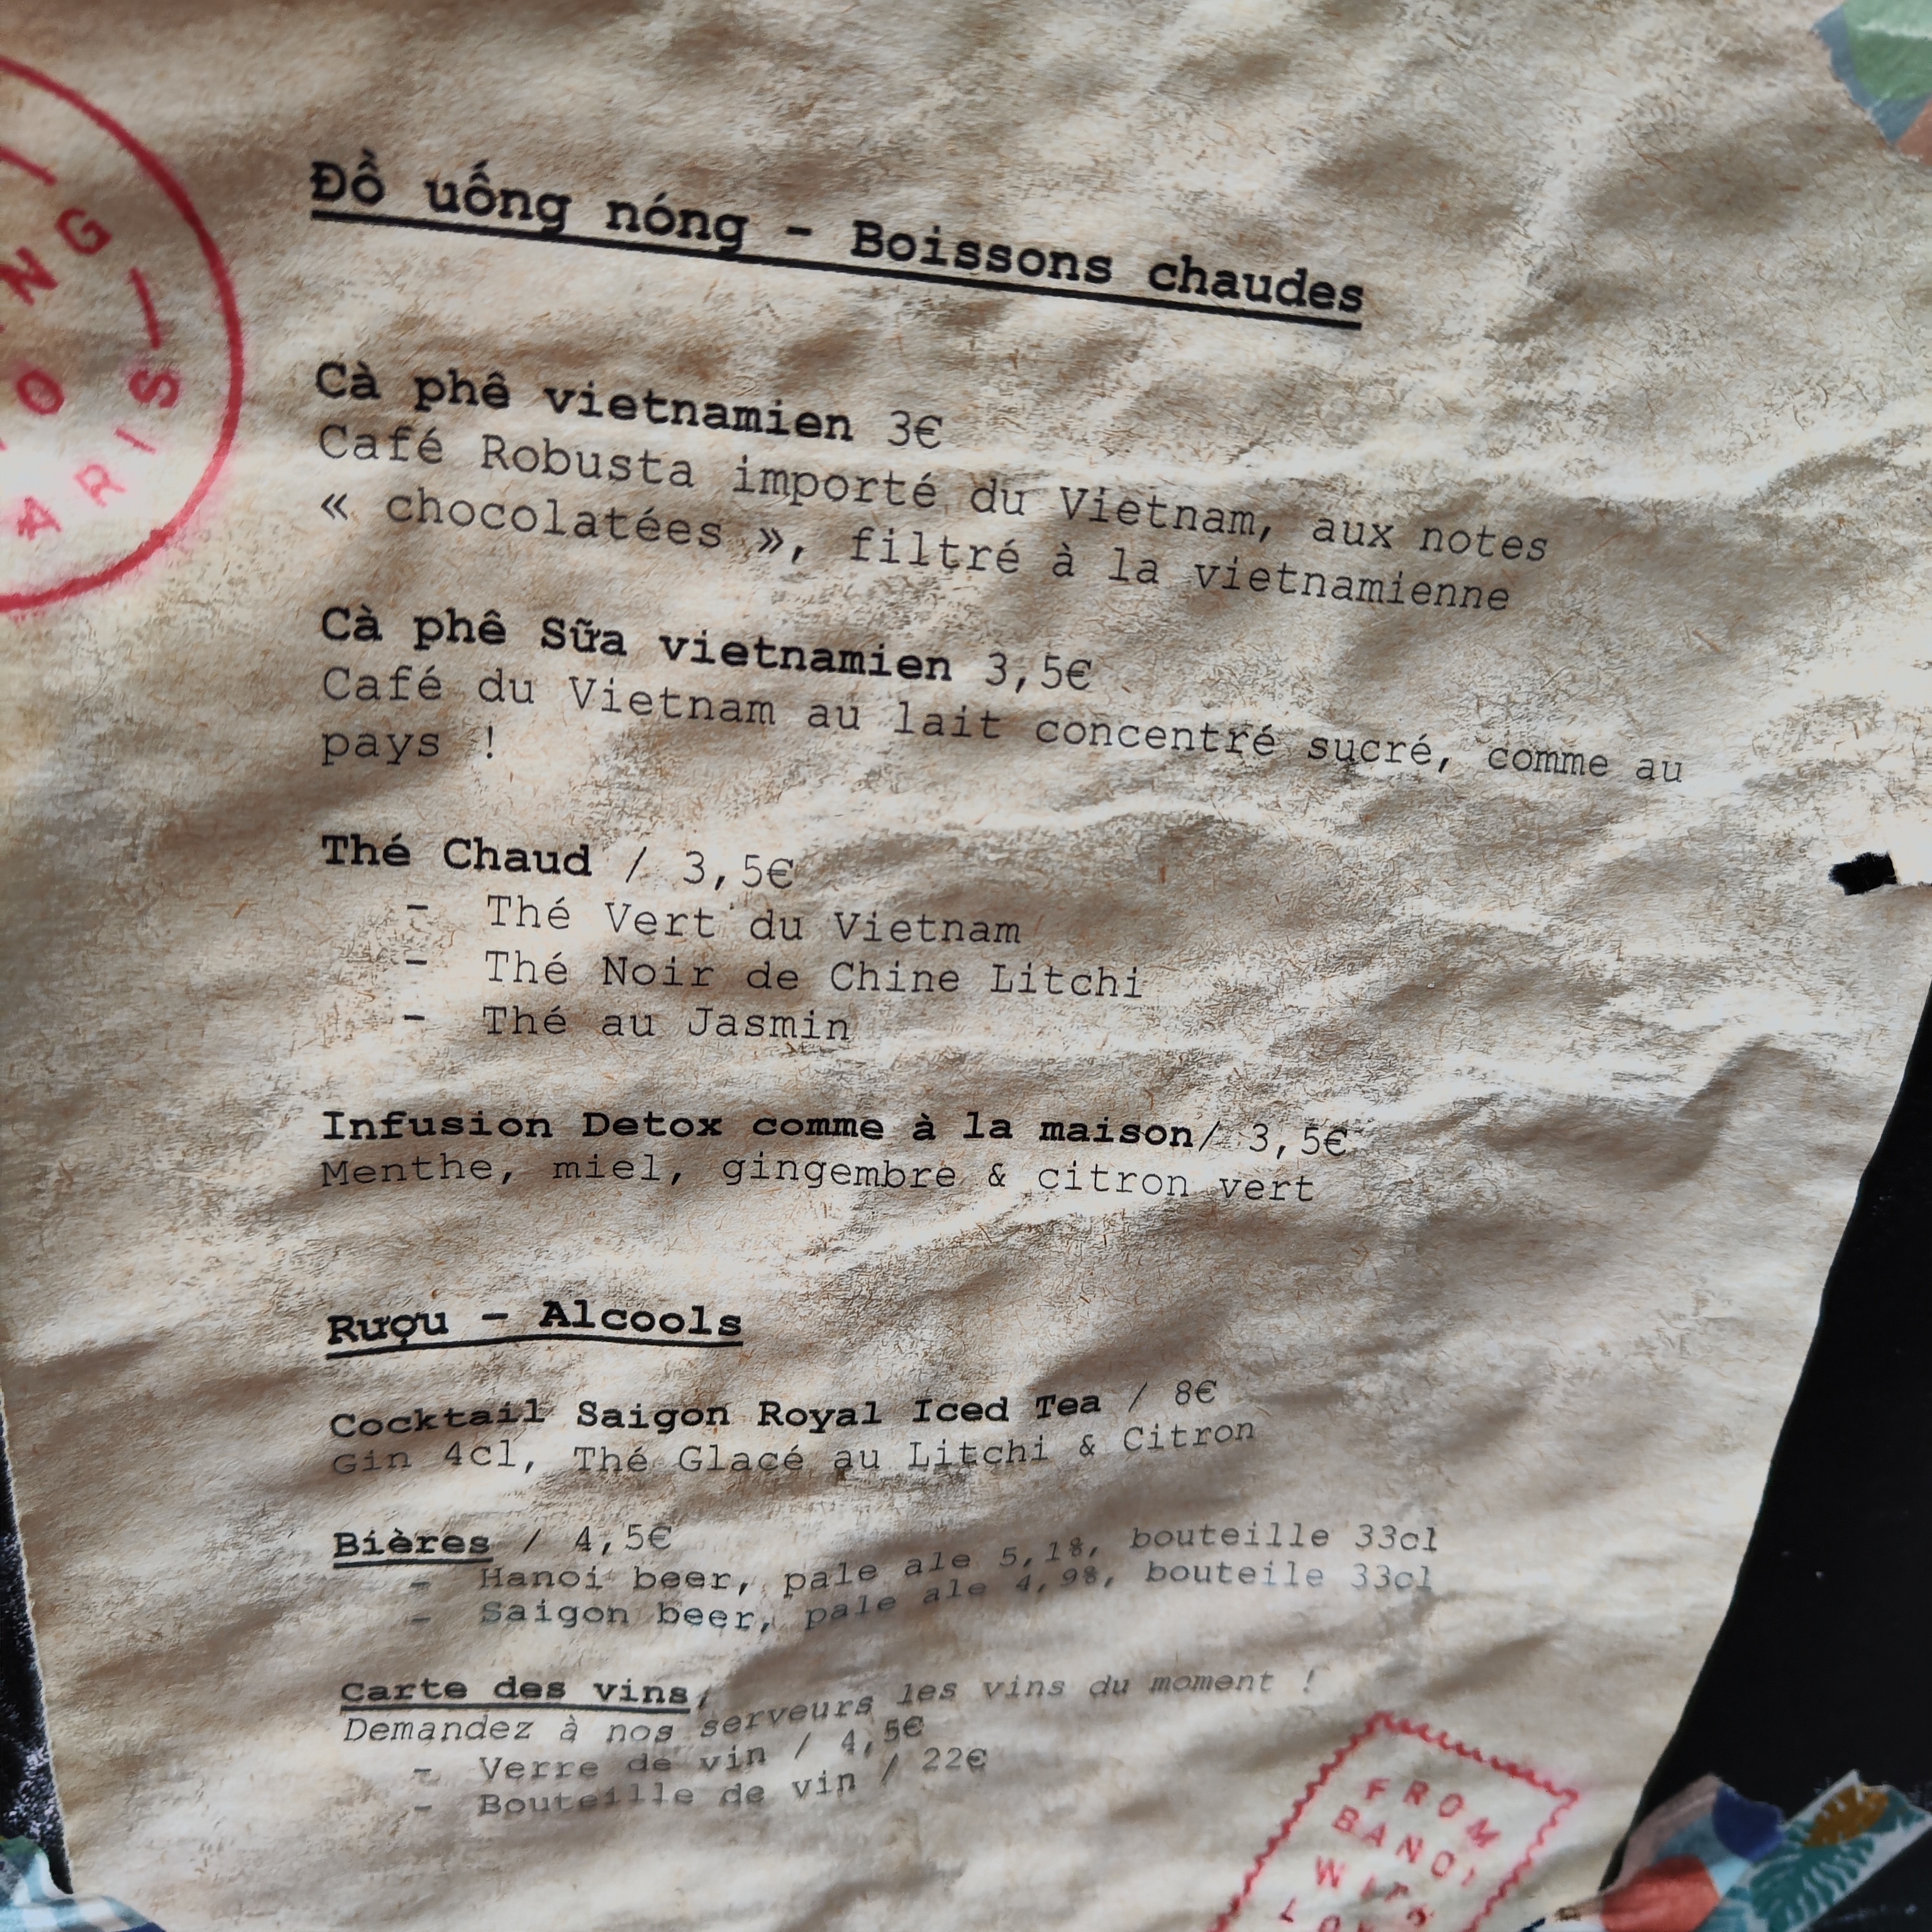 Đồ uống nóng - Boissons chaudes
Cà phê vietnamien 3€
Café Robusta importé du Vietnam, aux notes
« chocolatées », filtré à la vietnamienne
Cà phê Sữa vietnamien 3,5€
Café du Vietnam au lait concentré sucré, comme au
pays !
Thé Chaud / 3,5€
- Thé Vert du Vietnam
- Thé Noir de Chine Litchi
- Thé au Jasmin
Infusion Detox comme à la maison/ 3,5€
Menthe, miel, gingembre & citron vert
Rượu - Alcools
Cocktail Saigon Royal Iced Tea / 8€
Gin 4cl, Thé Glacé au Litchi & Citron
Bières / 4,5€
- Hanoi beer, pale ale 5,1%, bouteille 33cl
- Saigon beer, pale ale 4,9%, bouteile 33cl
Carte des vins,
Demandez à nos serveurs les vins du moment !
- Verre de vin / 4,5€
- Bouteille de vin / 22€
FROM
BANOI
WITH